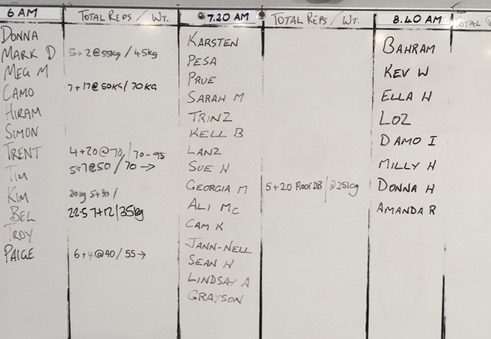 6 AM
TOTAL REPS / WT.
DONNA
MARK D 5+2@55kg / 45kg
MEG M
CAMO 7+17@50KG/70KG
HIRAM
SIMON
TRENT 4+20@70/70-95
TIM 5+7@50/70→
KIM 5+30/
BEL 22.5 7+12/35kg
TROY
PAIGE 6+4@40/55→
7.20 AM
TOTAL REPS / WT.
KARSTEN
PESA
PRUE
SARAH M
TRINZ
KELL B
LANZ
SUE H
GEORGIA M 5+20 @25kg
ALI MC
CAM K
JANN-NELL
SEAN H
LINDSAY A
GRAYSON
8.40 AM
BAHRAM
KEV W
ELLA H
LOZ
DAMO I
MILLY H
DONNA H
AMANDA R